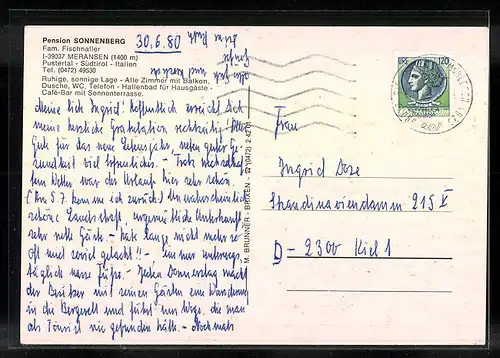 Pension SONNENBERG
Fam. Fischnaller
I-39037 MERANSEN (1400 m)
Pustertal - Südtirol - Italien
Tel. (0472) 49530
Ruhige, sonnige Lage - Alle Zimmer mit Balkon,
Dusche, WC, Telefon - Hallenbad für Hausgäste -
Café-Bar mit Sonnenterrasse.
30.6.80
Meine liebe Ingrid! Hoffentlich erreicht Dich
meine herzliche Gratulation rechtzeitig. Alles
Gute für das neue Lebensjahr, neben guter Ge-
sundheit viel Erfreuliches. - Trotz
Wetter war der Urlaub hier sehr schön.
(Am 5.7. kommen wir zurück) Die
schöne Landschaft, urgemütliche Unterkunft,
sehr nette Gäste - habe lange nicht mehr so
oft und soviel gelacht! - unterwegs,
täglich nasse Füße. - Jeden Donnerstag macht
der Besitzer mit seinen Gästen eine Wanderung
in die Bergwelt und führt uns Wege, die man
als Tourist nie gefunden hätte. - Nochmals
M. BRUNNER - BRIXEN - (0472) 2 42 01
LIRE 120
Frau
Ingrid Dose
Skandinaviendamm 215 V
D-2300 Kiel 1